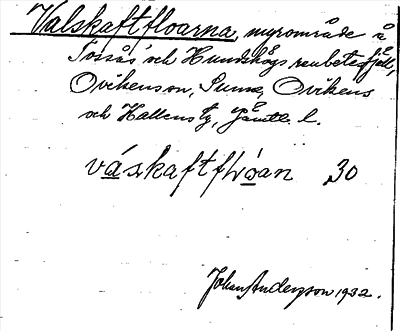 Valskaftfloarna, myrområde å
Tossås och Hundshögs renbetesfjäll,
Ovikens sn, Sunne, Ovikens
och Hallens tg, Jämtl. l.
váskaftflóan 30
Johan Anderson 1932.